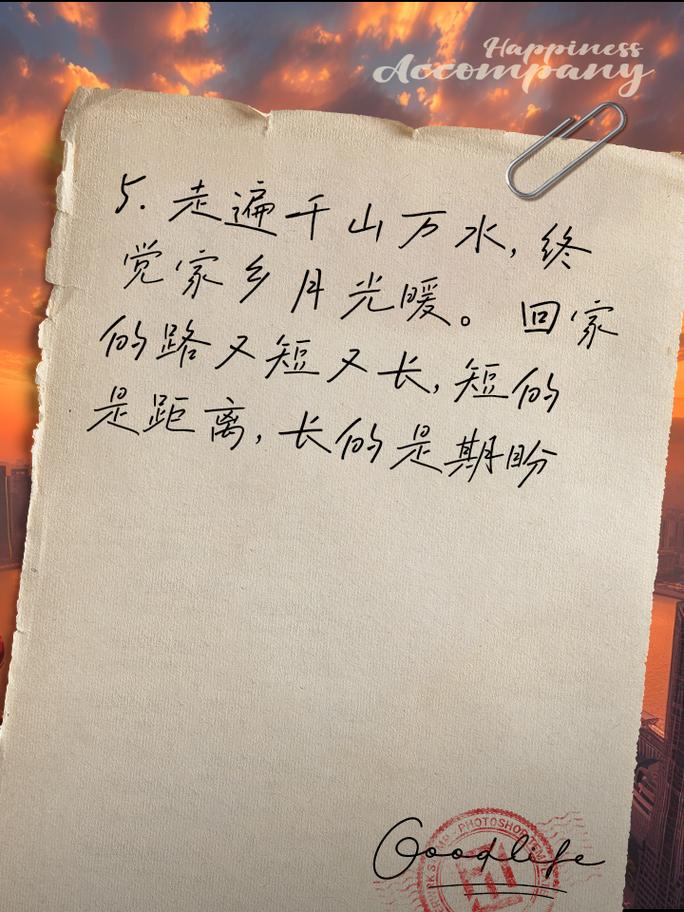 Happiness
Accompany
5. 走遍千山万水，终
觉家乡月光暖。回家
的路又短又长，短的
是距离，长的是期盼
PHOTOSHOP
Goodlife